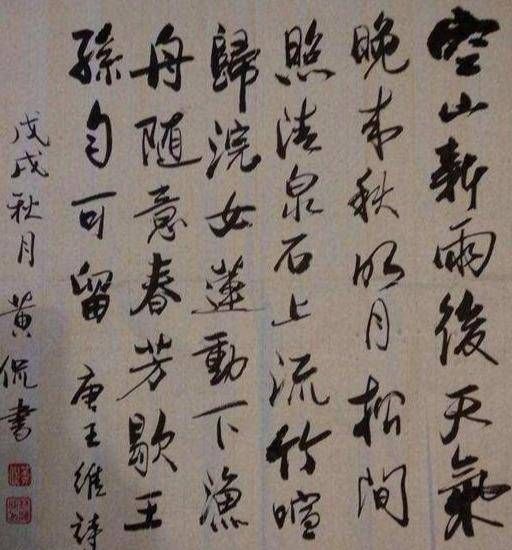 空山新雨後天氣
晚来秋明月松间
照清泉石上流竹喧
歸浣女蓮動下漁
舟随意春芳歇王
孫自可留 唐王維詩
戊戌秋月 黄侃書